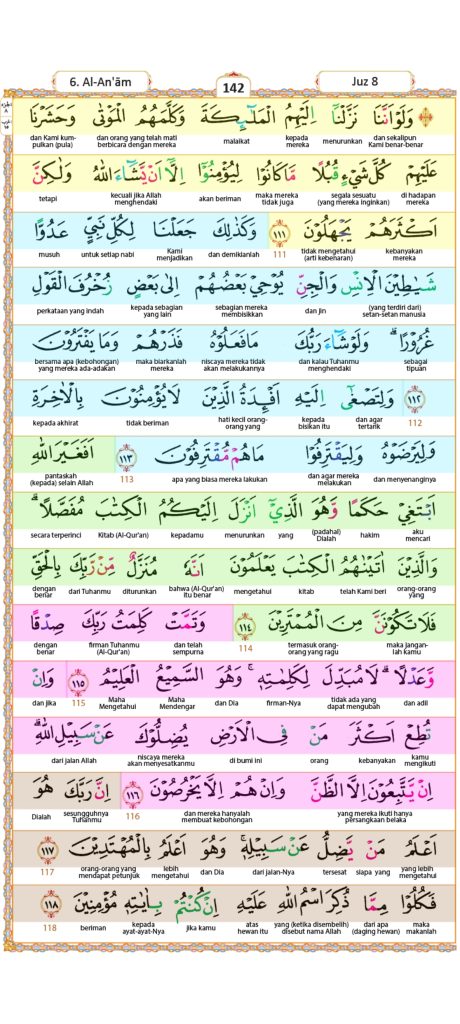 6. Al-An'ām
142
Juz 8
وَلَوْ اَنَّنَا نَزَّلْنَآ اِلَيْهِمُ الْمَلٰۤىِٕكَةَ وَكَلَّمَهُمُ الْمَوْتٰى وَحَشَرْنَا
dan sekalipun Kami benar-benar menurunkan kepada mereka malaikat dan orang yang telah mati berbicara dengan mereka dan Kami kumpulkan (pula)
عَلَيْهِمْ كُلَّ شَيْءٍ قُبُلًا مَّا كَانُوْا لِيُؤْمِنُوْٓا اِلَّآ اَنْ يَّشَاۤءَ اللّٰهُ وَلٰكِنَّ
di hadapan mereka segala sesuatu (yang mereka inginkan) maka mereka tidak juga akan beriman kecuali jika Allah menghendaki tetapi
اَكْثَرَهُمْ يَجْهَلُوْنَ ١١١ وَكَذٰلِكَ جَعَلْنَا لِكُلِّ نَبِيٍّ عَدُوًّا
kebanyakan mereka tidak mengetahui (arti kebenaran) 111 dan demikianlah Kami menjadikan untuk setiap nabi musuh
شَيٰطِيْنَ الْاِنْسِ وَالْجِنِّ يُوْحِيْ بَعْضُهُمْ اِلٰى بَعْضٍ زُخْرُفَ الْقَوْلِ
(yang terdiri dari) setan-setan manusia dan jin sebagian mereka membisikkan kepada sebagian yang lain perkataan yang indah
غُرُوْرًا ۗ وَلَوْ شَاۤءَ رَبُّكَ مَا فَعَلُوْهُ فَذَرْهُمْ وَمَا يَفْتَرُوْنَ
sebagai tipuan dan kalau Tuhanmu menghendaki niscaya mereka tidak akan melakukannya maka biarkanlah mereka bersama apa (kebohongan) yang mereka ada-adakan
١١٢ وَلِتَصْغٰٓى اِلَيْهِ اَفْـِٕدَةُ الَّذِيْنَ لَا يُؤْمِنُوْنَ بِالْاٰخِرَةِ
112 dan agar tertarik kepada bisikan itu hati kecil orang-orang yang tidak beriman kepada akhirat
وَلِيَرْضَوْهُ وَلِيَقْتَرِفُوْا مَا هُمْ مُّقْتَرِفُوْنَ ١١٣ اَفَغَيْرَ اللّٰهِ
dan menyenanginya dan agar mereka melakukan apa yang biasa mereka lakukan 113 pantaskah (kepada) selain Allah
اَبْتَغِيْ حَكَمًا وَّهُوَ الَّذِيْٓ اَنْزَلَ اِلَيْكُمُ الْكِتٰبَ مُفَصَّلًا ۗ
aku mencari hakim (padahal) Dialah yang menurunkan kepadamu Kitab (Al-Qur'an) secara terperinci
وَالَّذِيْنَ اٰتَيْنٰهُمُ الْكِتٰبَ يَعْلَمُوْنَ اَنَّهٗ مُنَزَّلٌ مِّنْ رَّبِّكَ بِالْحَقِّ
orang-orang yang telah Kami beri kitab mengetahui bahwa (Al-Qur'an) itu benar diturunkan dari Tuhanmu dengan benar
فَلَا تَكُوْنَنَّ مِنَ الْمُمْتَرِيْنَ ١١٤ وَتَمَّتْ كَلِمَتُ رَبِّكَ صِدْقًا
maka jangan-lah kamu termasuk orang-orang yang ragu 114 dan telah sempurna firman Tuhanmu (Al-Qur'an) dengan benar
وَّعَدْلًا ۗ لَا مُبَدِّلَ لِكَلِمٰتِهٖ ۚ وَهُوَ السَّمِيْعُ الْعَلِيْمُ ١١٥ وَاِنْ
dan adil tidak ada yang dapat mengubah firman-Nya dan Dia Maha Mendengar Maha Mengetahui 115 dan jika
تُطِعْ اَكْثَرَ مَنْ فِى الْاَرْضِ يُضِلُّوْكَ عَنْ سَبِيْلِ اللّٰهِ ۗ
kamu mengikuti kebanyakan orang di bumi ini niscaya mereka akan menyesatkanmu dari jalan Allah
اِنْ يَّتَّبِعُوْنَ اِلَّا الظَّنَّ وَاِنْ هُمْ اِلَّا يَخْرُصُوْنَ ١١٦ اِنَّ رَبَّكَ هُوَ
yang mereka ikuti hanya persangkaan belaka dan mereka hanyalah membuat kebohongan 116 sesungguhnya Tuhanmu Dialah
اَعْلَمُ مَنْ يَّضِلُّ عَنْ سَبِيْلِهٖ ۚ وَهُوَ اَعْلَمُ بِالْمُهْتَدِيْنَ ١١٧
yang lebih mengetahui siapa yang tersesat dari jalan-Nya dan Dia lebih mengetahui orang-orang yang mendapat petunjuk 117
فَكُلُوْا مِمَّا ذُكِرَ اسْمُ اللّٰهِ عَلَيْهِ اِنْ كُنْتُمْ بِاٰيٰتِهٖ مُؤْمِنِيْنَ ١١٨
maka makanlah dari apa (daging hewan) yang (ketika disembelih) disebut nama Allah atas hewan itu jika kamu kepada ayat-ayat-Nya beriman 118